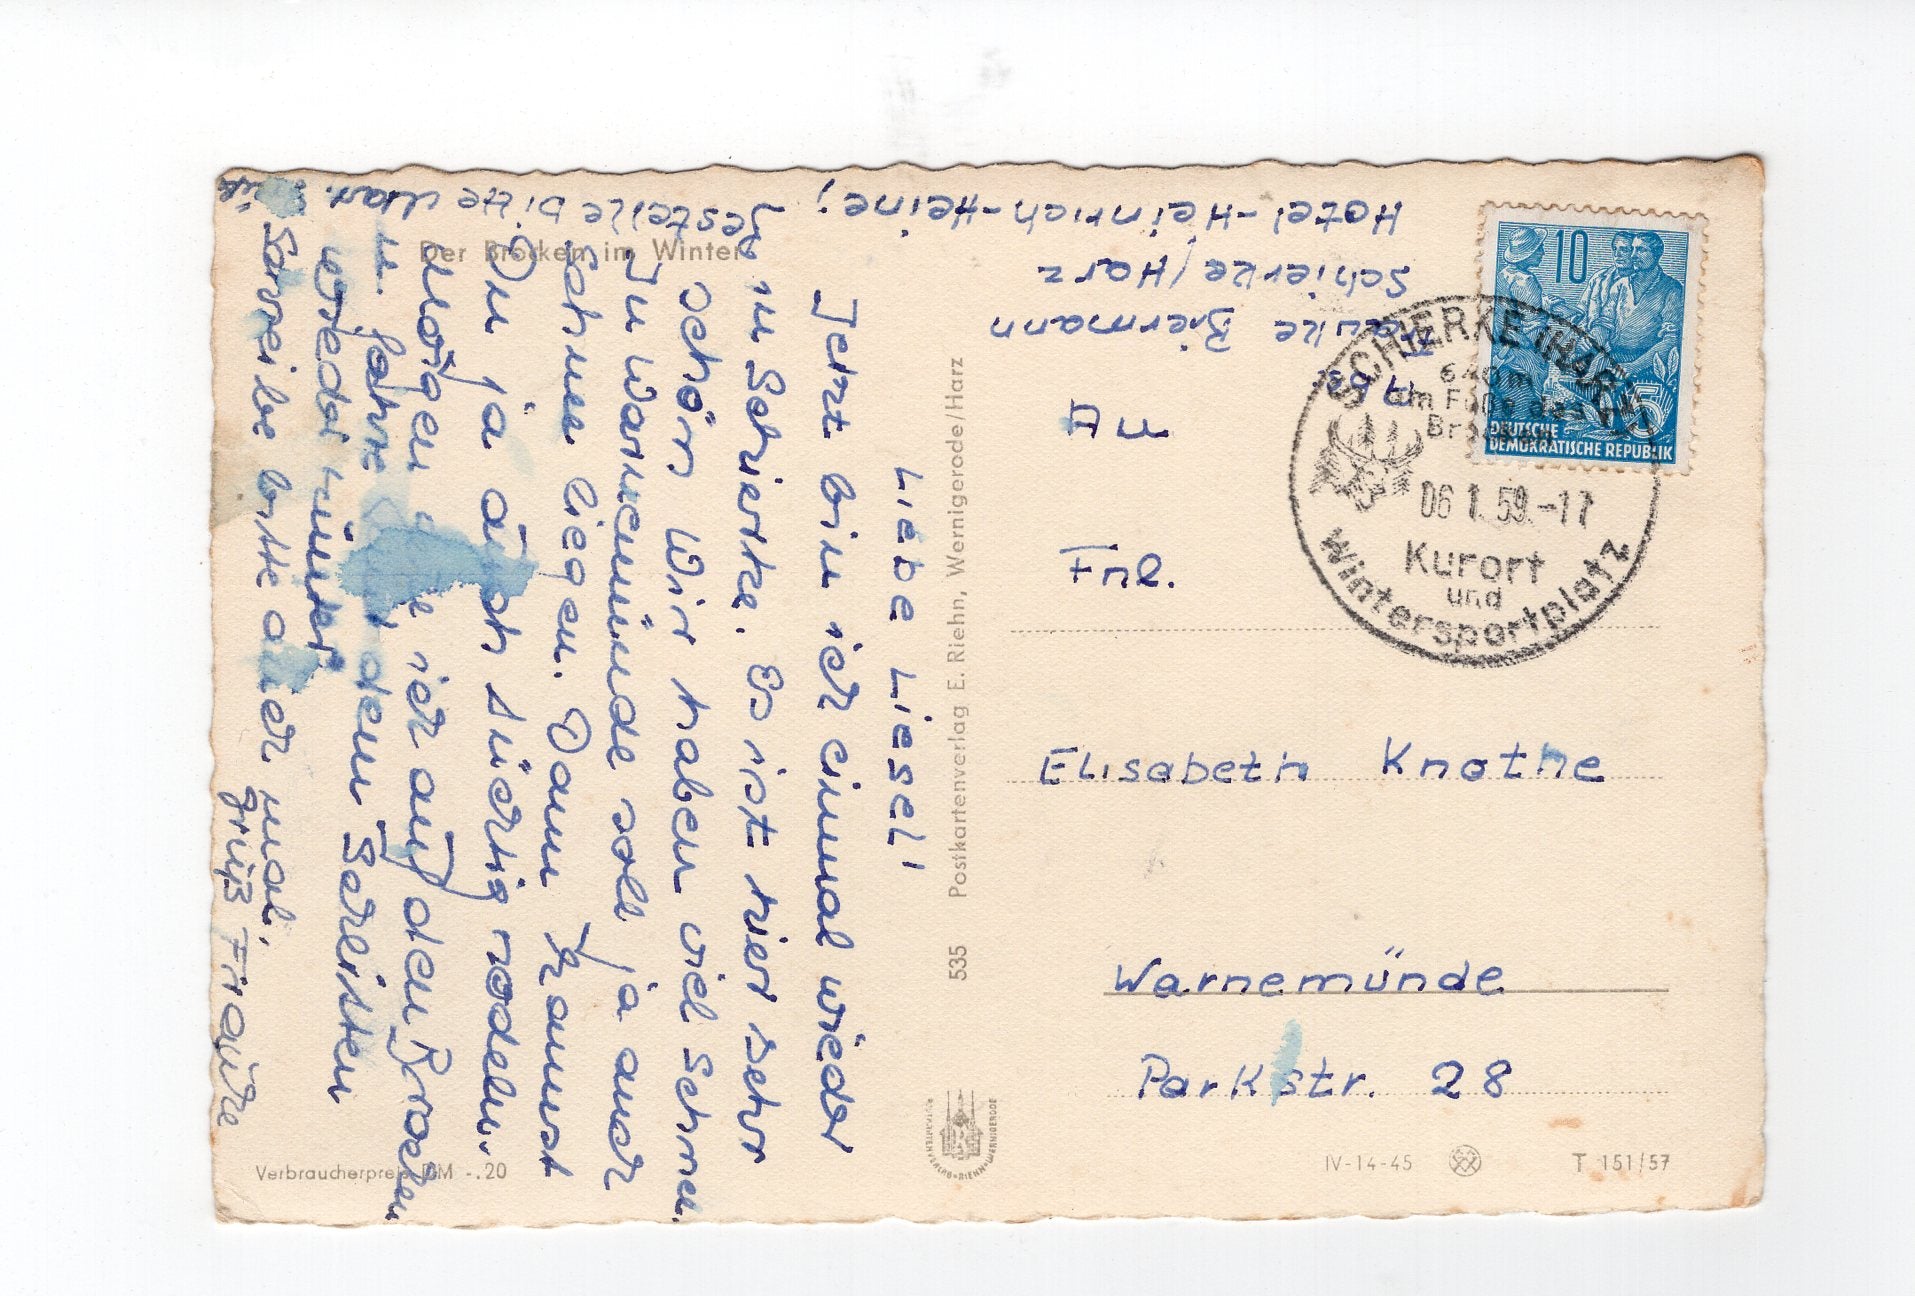 Der Brocken im Winter
Liebe Liesel!
Jetzt bin ich einmal wieder
in Schierke. Es ist hier sehr
schön. Wir haben viel Schnee.
In Warnemünde soll ja auch
Schnee liegen. Dann kannst
Du ja auch tüchtig rodeln.
Morgen ich auf den Brocken
u. fahre dem Schlitten
wieder runter
Schreibe bitte auch mal,
Gruß Frauke
bitte
Verbraucherpreis DM -.20
535 Postkartenverlag E. Riehn, Wernigerode/Harz
POSTKARTENVERLAG·RIEHN·WERNIGERODE
Frauke Biermann
Schierke/Harz
Hotel-Heinrich-Heine;
10
5
DEUTSCHE
DEMOKRATISCHE REPUBLIK
SCHIERKE (HARZ)
640m
am Fuße des
Brocken
06.1.59.-17
Kurort
und
Wintersportplatz
An
Frl.
Elisabeth Knothe
Warnemünde
Parkstr. 28
IV-14-45 T 151/57